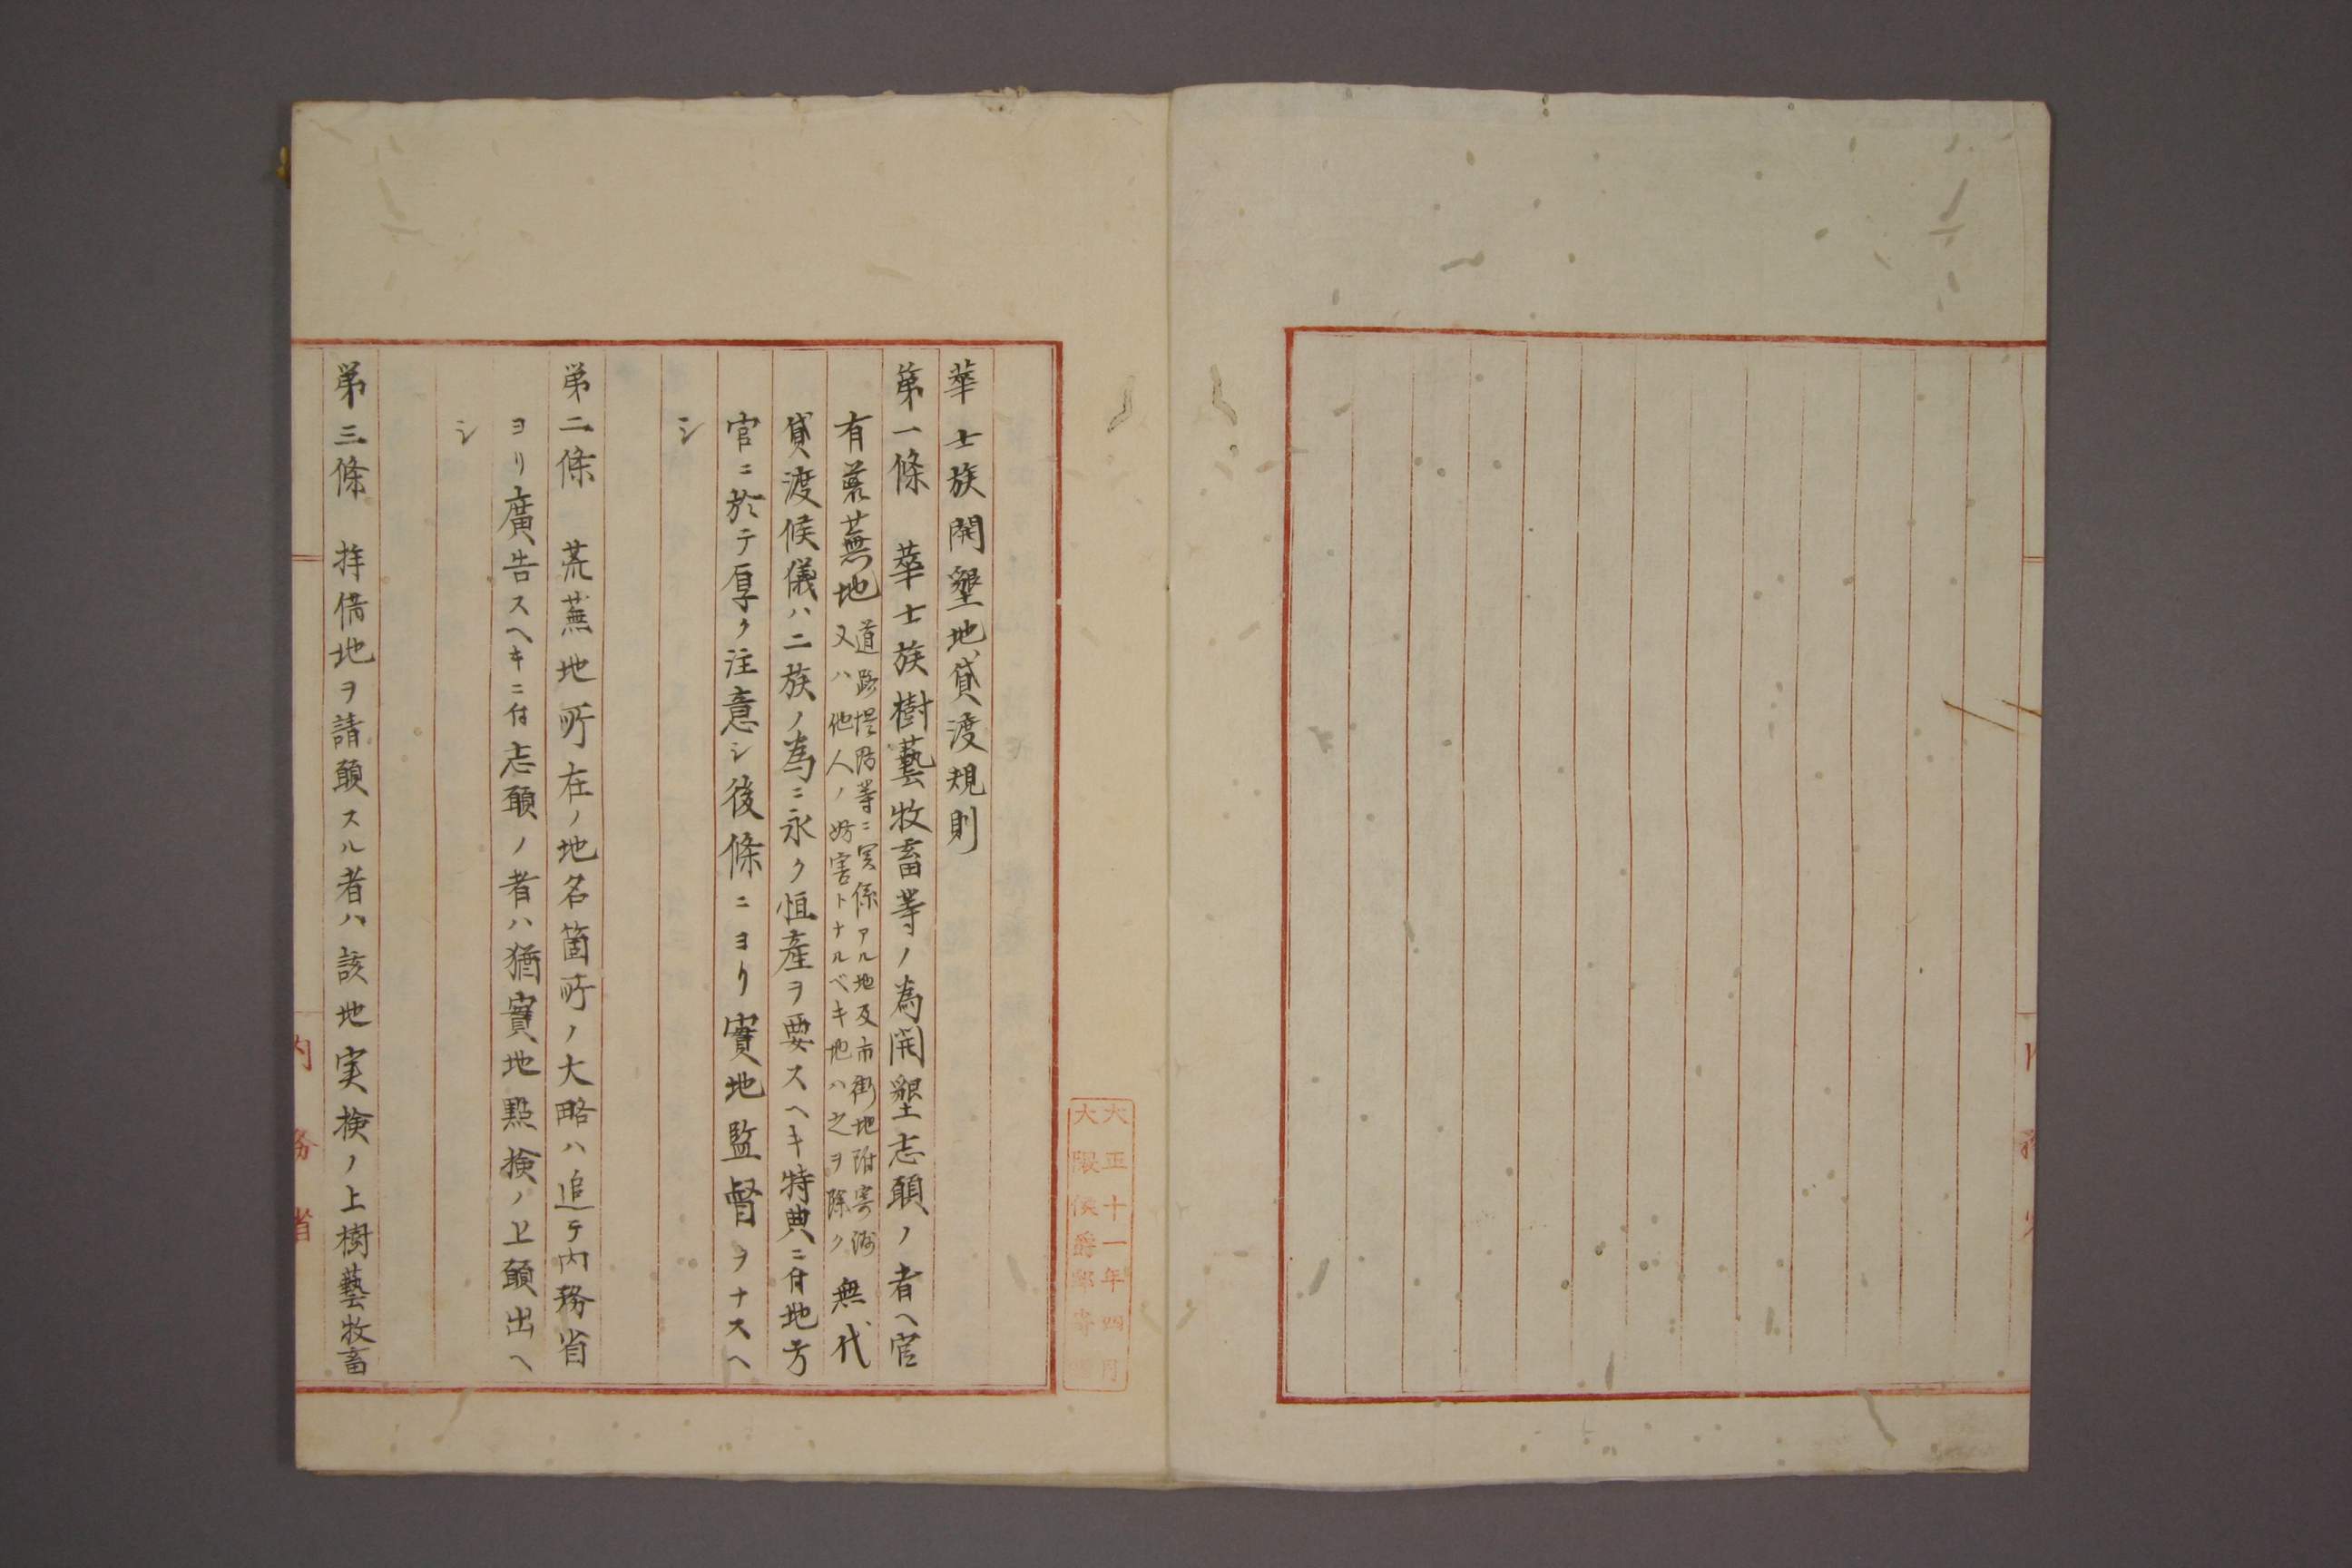 華士族開墾地貸渡規則
第一條　華士族樹藝牧畜等ノ為開墾志願ノ者ヘ官
有荒蕪地
道路堤防等ニ実係アル地及市街地附寄洲
又ハ他人ノ妨害トナルベキ地ハ之ヲ除ク
無代
貸渡候儀ハ二族ノ為ニ永ク恒産ヲ要スヘキ特典ニ付地方
官ニ於テ厚ク注意シ後條ニヨリ實地監督ヲナスヘ
シ
第二條　荒蕪地所在ノ地名箇所ノ大略ハ追テ内務省
ヨリ廣告スヘキニ付志願ノ者ハ猶實地點検ノ上願出ヘ
シ
第三條　拝借地ヲ請願スル者ハ該地実検ノ上樹藝牧畜
内務省
大正十一年四月
大隈侯爵邸寄